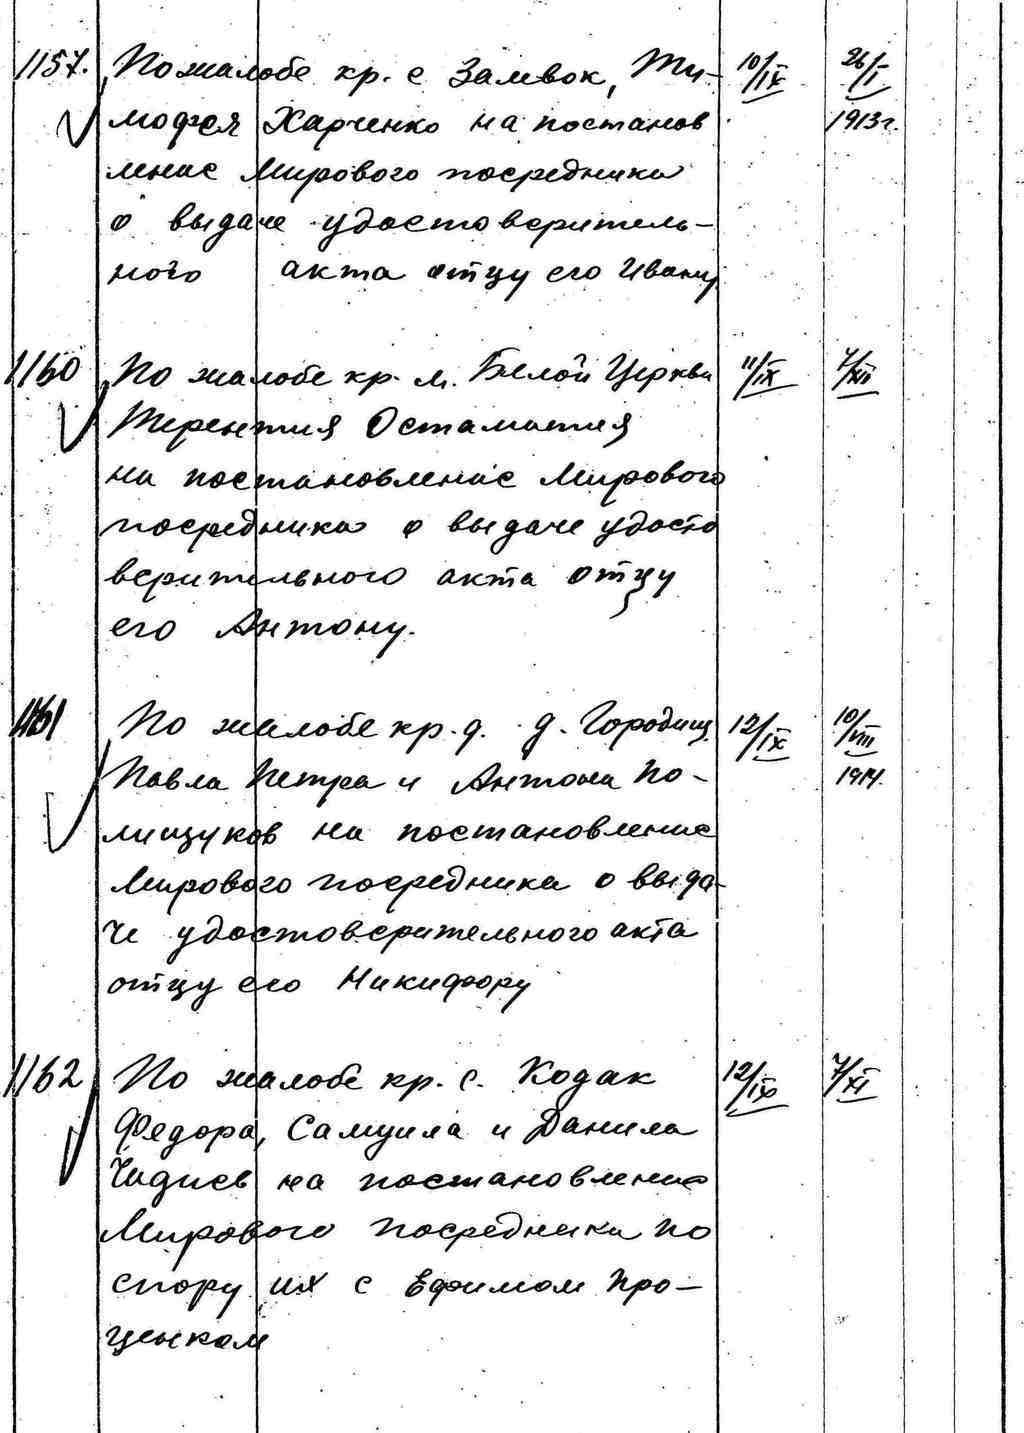 1157. По жалобе кр. с Замвок, Ти- 10/IX 26/I
мофея Харченко на постанов 1913г.
ление Мирового посредника
о выдаче удостоверитель-
ного акта отцу его Ивану
1160 По жалобе кр. м. Белой Церкви 11/IX 7/XII
Терентия
на постановление Мирового
посредника о выдаче удосто
верительного акта отцу
его Антону.
1161 По жалобе кр. д. д. Городищ 12/IX 10/VIII
Павла Петра и Антона По- 1914.
лищуков на постановление
Мирового посредника о выда-
че удостоверительного акта
отцу его Никифору
1162 По жалобе кр. с. Кодак 12/IX 7/XI
Федора, Самуила и Данила
на постановление
Мирового посредника по
спору их с Ефимом Про-
ценком